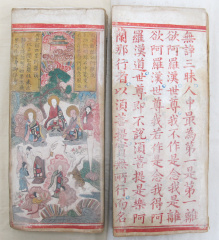 無諍三昧人中最為第一是第一離
欲阿羅漢世尊我不作是念我是離
欲阿羅漢世尊我若作是念我得阿
羅漢道世尊即不說須菩提是樂阿
蘭那行者以須菩提實無所行而名